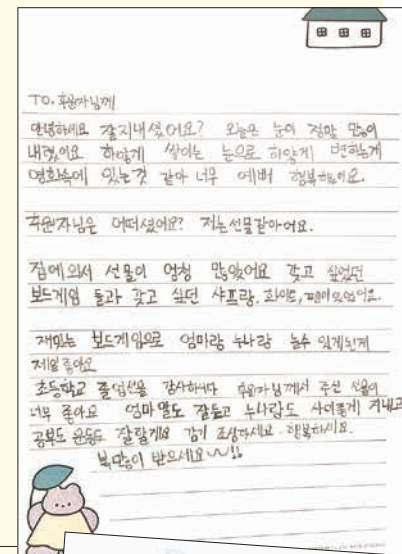 TO. 후원자님께
안녕하세요 잘지내셨어요? 오늘은 눈이 정말 많이
내렸어요 하얗게 쌓이는 눈으로 하얗게 변하는게
영화속에 있는것 같아 너무 예뻐 행복해요.
후원자님은 어떠셨어요? 저는선물같아어요.
집에와서 선물이 엄청 많았어요 갖고 싶었던
보드게임 들과 갖고 싶던 샤프랑, 화이트, 펜이있었어요.
재밌는 보드게임으로 엄마랑 누나랑 놀수 있게된게
제일좋아요
초등학교 졸업선물 감사하니다 후원자님께서 주신 선물이
너무 좋아요 엄마 말도 잘듣고 누나랑도 사이좋게 지내고
공부도 운동도 잘할게요 감기 조심하세요. 행복하시요.
복많이 받으세요~!!